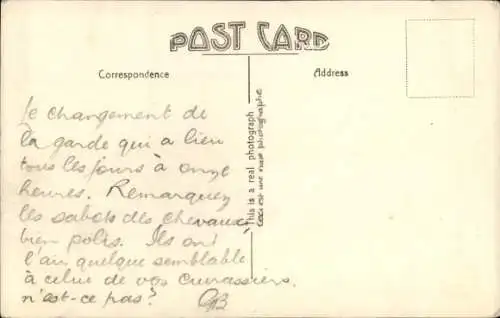 POST CARD
Correspondence
Address
le changement de
la garde qui a lieu
tous les jours à onze
heures. Remarquez
les sabots des chevaux,
bien polis. Ils ont
l'air quelque semblable
à celui de vos cuirassiers,
n'est-ce pas? GB
This is a real photograph
Ceci est une vraie photographie